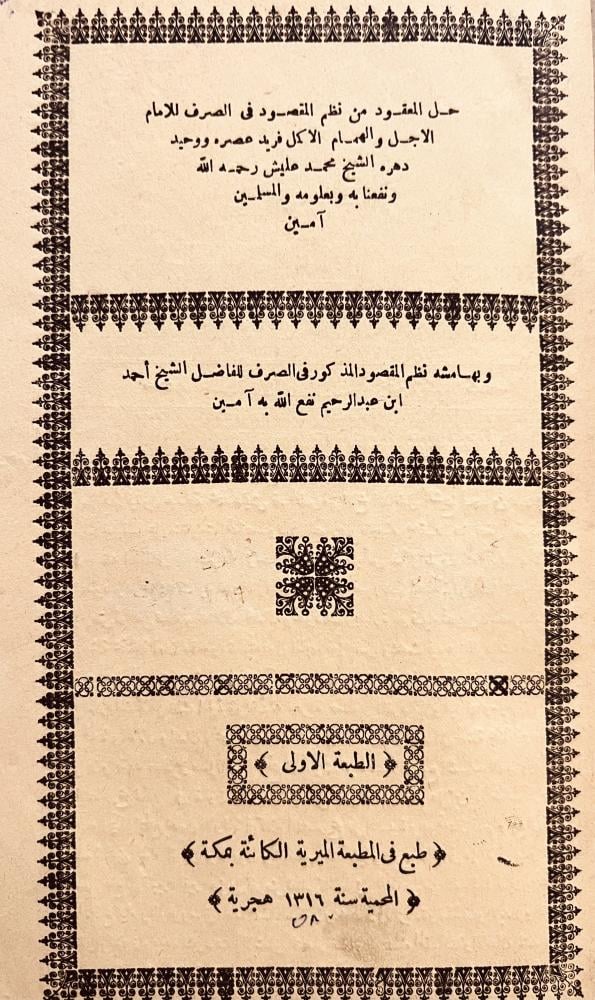 حل المعقود من نظم المقصود فى الصرف للامام
الاجل والهمام الاكمل فريد عصره ووحيد
دهره الشيخ محمد عليش رحمه الله
ونفعنا به وبعلومه والمسلمين
آمين
وبهامشه نظم المقصود المذكور فى الصرف للفاضل الشيخ أحمد
ابن عبد الرحيم نفع الله به آمين
﴿ الطبعة الاولى ﴾
﴿ طبع فى المطبعة الميرية الكائنة بمكة ﴾
﴿ المحمية سنة ١٣١٦ هجرية ﴾